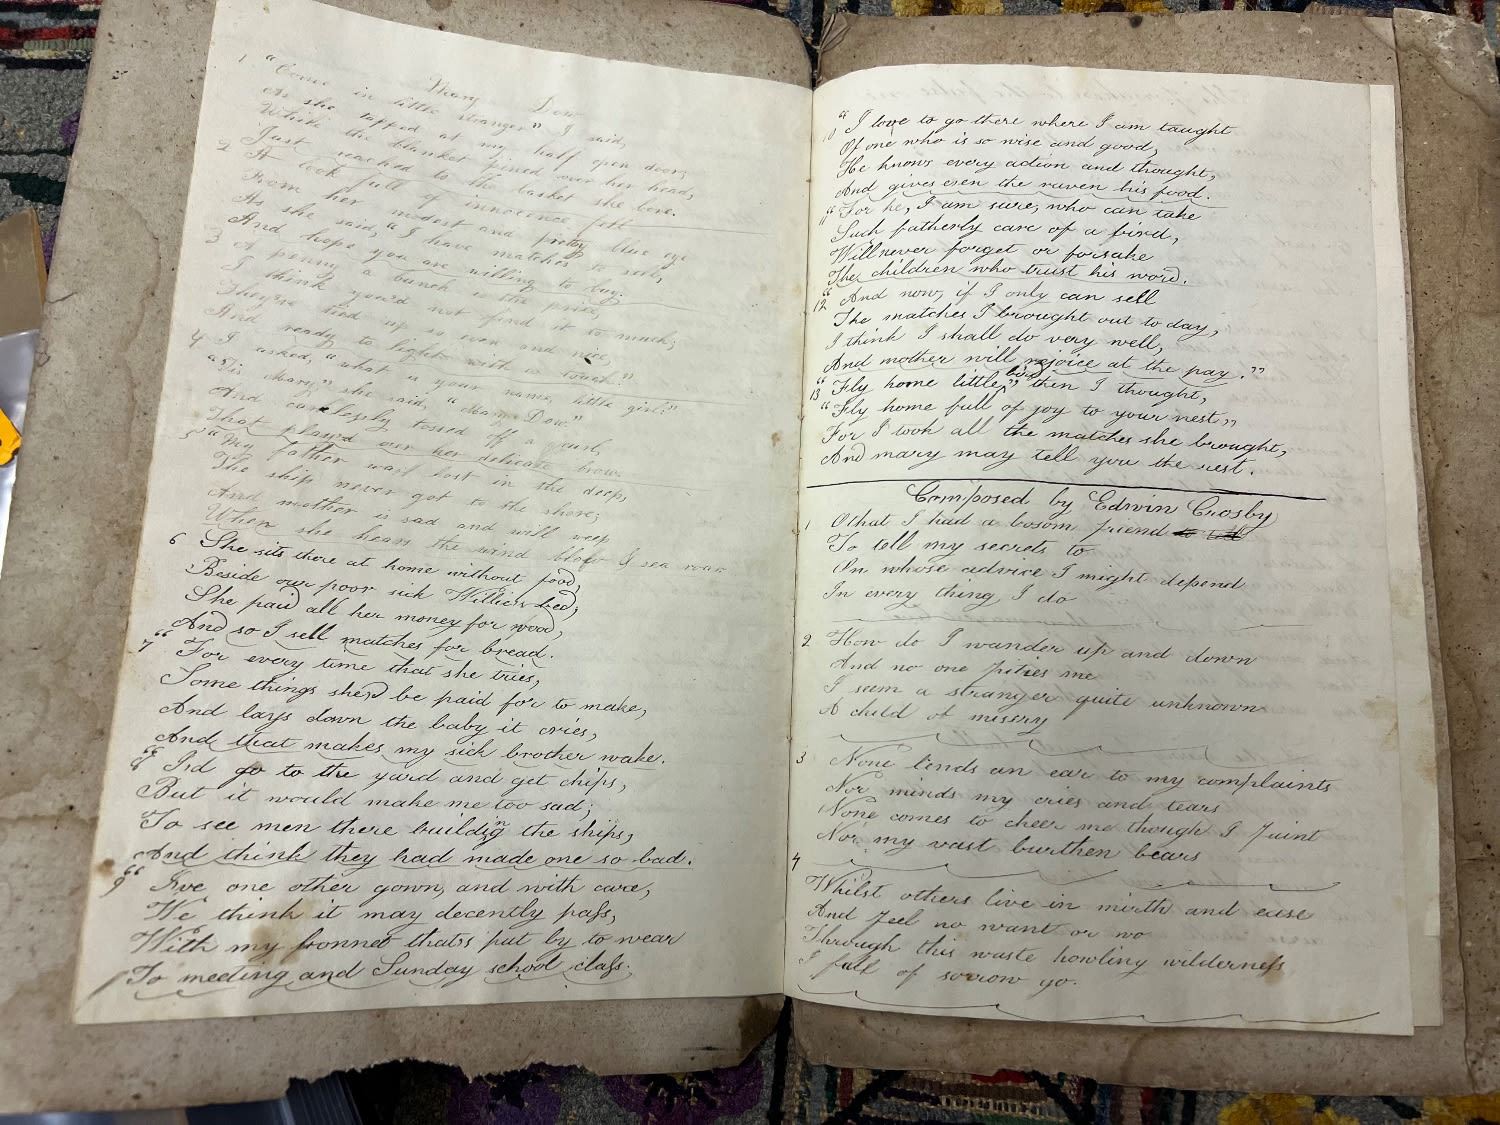 Mary Dow
1 "Come in little stranger" I said,
As she tapped at my half open door,
While the blanket pined over her head,
Just reached to the basket she bore.
2 A look full of innocence fell
From her modest and pretty blue eye
As she said, "I have matches to sell,
And hope you are willing to buy.
3 A penny a bunch is the price,
I think you'd not find it to much;
They're tied up so even and nice,
And ready to light with a touch."
4 I asked, "what is your name, little girl?"
"'Tis Mary," she said, "Mary Dow."
And carelessly tossed off a curl,
That played over her delicate brow.
5 "My father was lost in the deep,
The ship never got to the shore;
And mother is sad and will weep
When she hears the wind blow & sea roar
6 She sits there at home without food,
Beside our poor sick Willie's bed;
She paid all her money for wood,
And so I sell matches for bread.
7 "For every time that she tries,
Some things she'd be paid for to make,
And lays down the baby it cries,
And that makes my sick brother wake.
8 "I'd go to the yard and get chips,
But it would make me too sad;
To see men there buildig the ships,
And think they had made one so bad.
9 "I've one other gown, and with care,
We think it may decently pass,
With my bonnet that's put by to wear
To meeting and Sunday school class.
10 "I love to go there where I am taught
Of one who is so wise and good,
He knows every action and thought,
And gives even the raven his food.
11 "For he, I am sure, who can take
Such fatherly care of a bird,
Will never forget or forsake
The children who trust his word.
12 "And now, if I only can sell
The matches I brought out to day,
I think I shall do very well,
And mother will rejoice at the pay."
13 "Fly home little bird" then I thought,
"Fly home full of joy to your nest"
For I took all the matches she brought,
And mary may tell you the rest.
Composed by Edwin Crosby
1 O that I had a bosom friend
To tell my secrets to
On whose advice I might depend
In every thing I do
2 How do I wander up and down
And no one pities me
I seem a stranger quite unknown
A child of misery
3 None lends an ear to my complaints
Nor minds my cries and tears
None comes to cheer me though I faint
Nor my vast burthen bears
4 Whilst others live in mirth and ease
And feel no want or wo
Through this waste howling wilderness
I full of sorrow go.